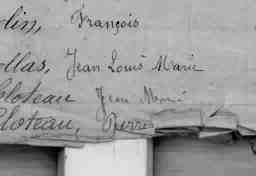 lin, François
ollas, Jean Louis Marie
loteau Jean Marie
loteau, Pierre